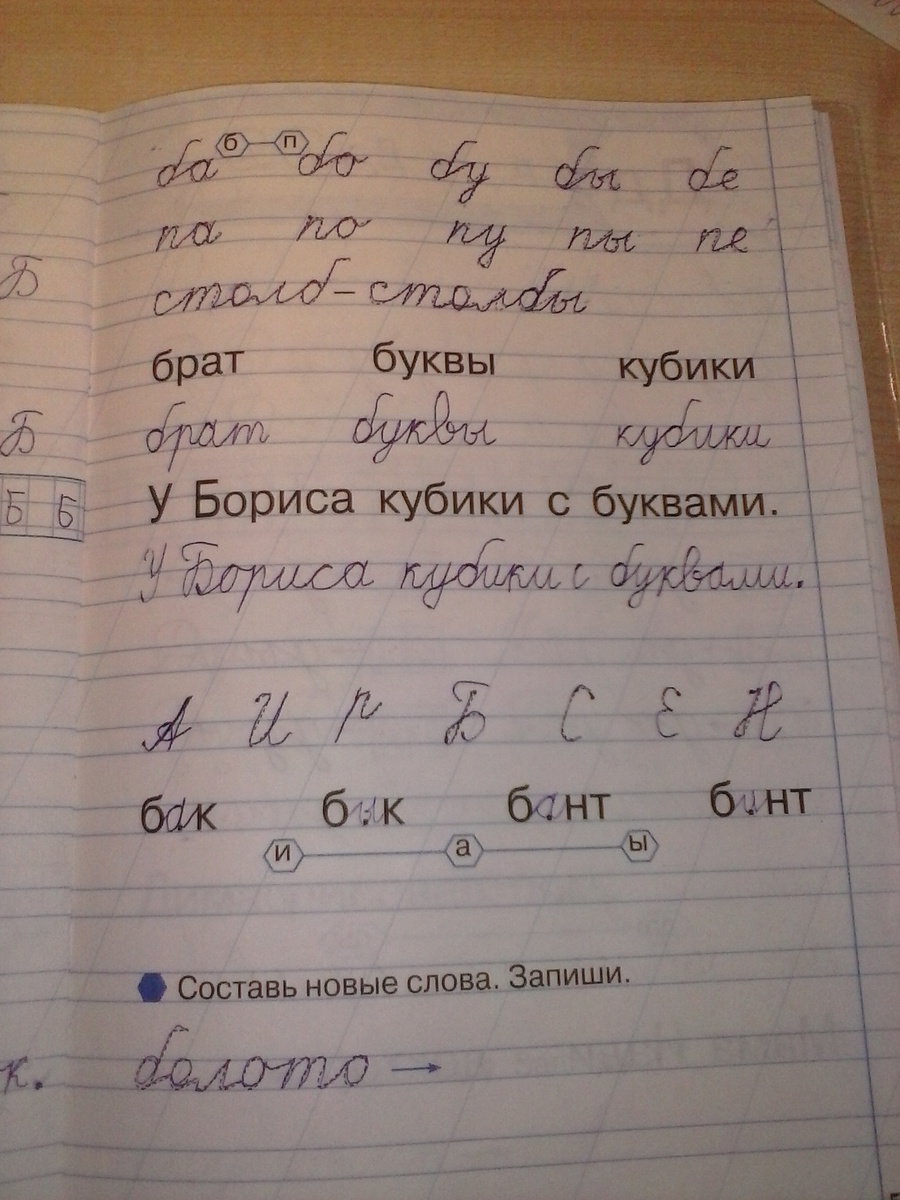 б п
ба бо бу бы бе
па по пу пы пе
столб – столбы
брат буквы кубики
брат буквы кубики
У Бориса кубики с буквами.
У Бориса кубики с буквами.
А И Р Б С Е Н
бак бык бант бинт
и а ы
Составь новые слова. Запиши.
болото →
Б
Б
Б Б
к.